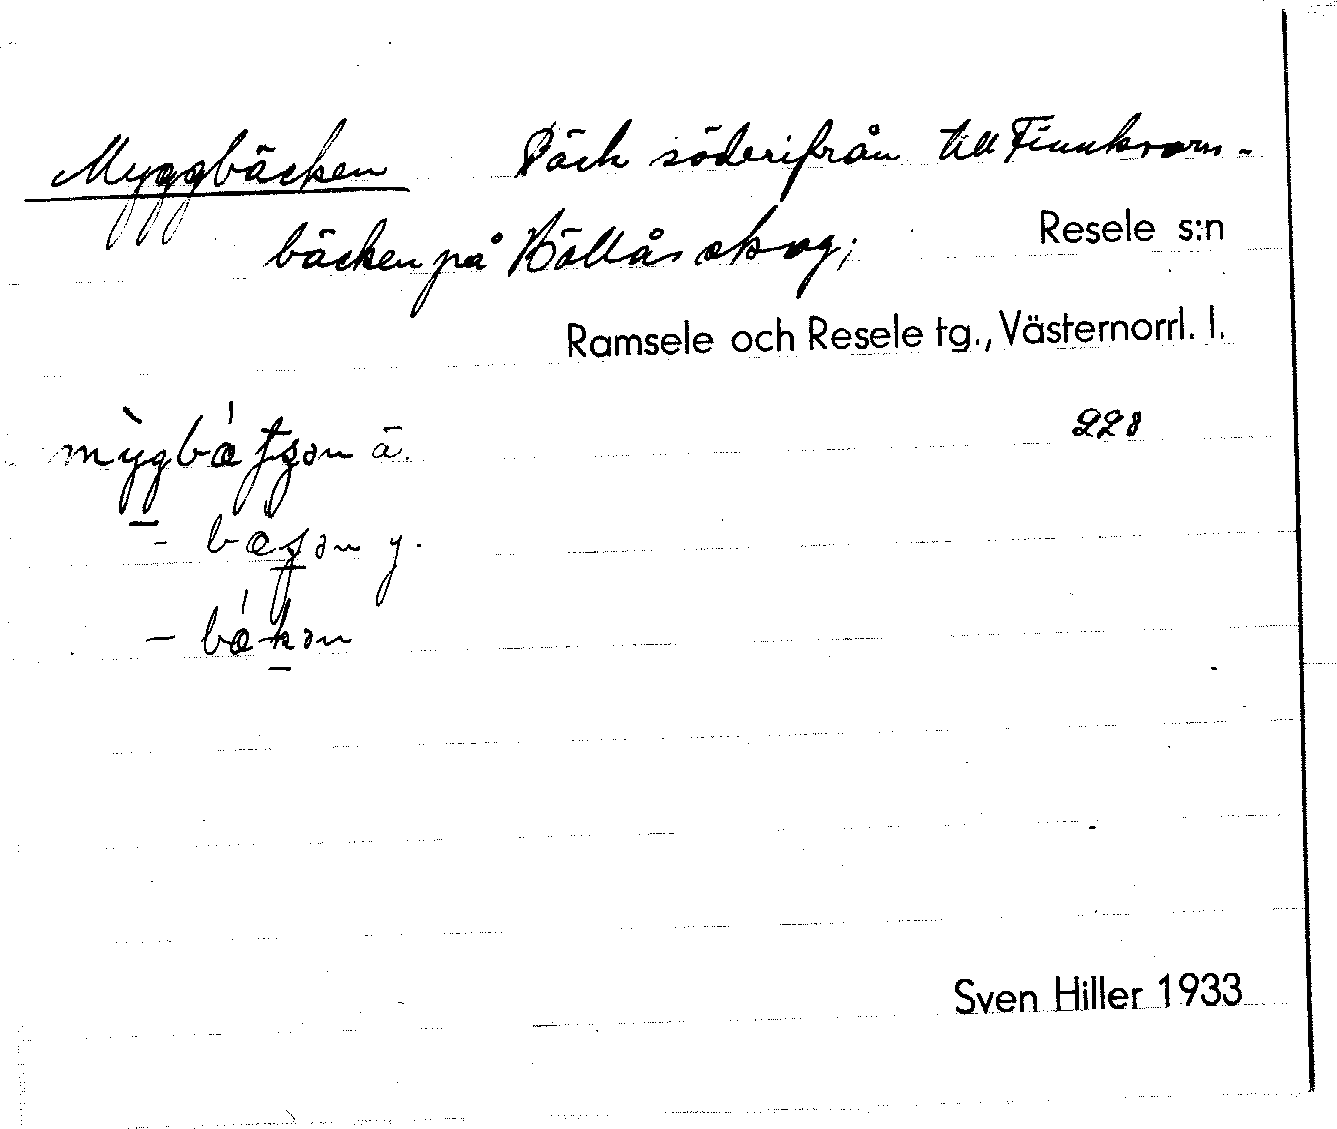 Myggbäcken Bäck söderifrån till Finnkvarn-
bäcken på Höllås skog;
Resele s:n
Ramsele och Resele tg., Västernorrl. l.
228
ä.
y.
Sven Hiller 1933